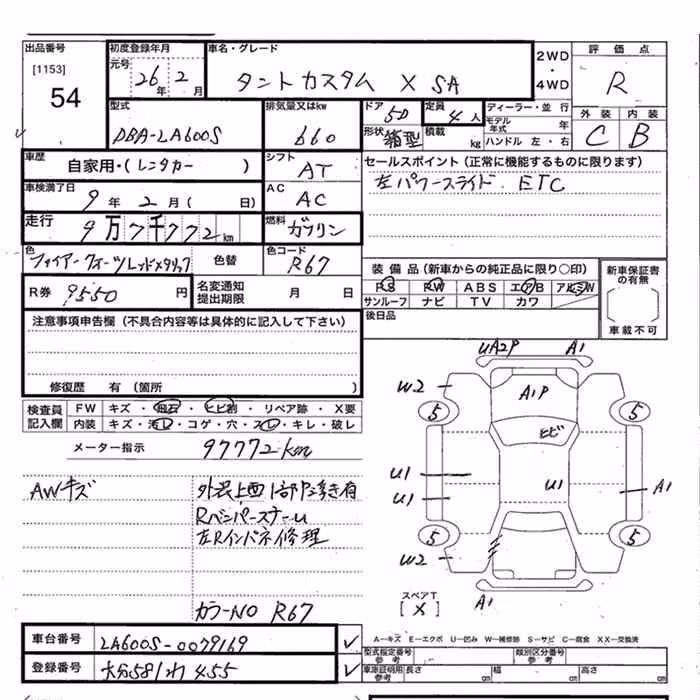 出品番号
[1153]
54
初度登録年月
元号
26年 2月
車名・グレード
タントカスタム X SA
2WD
・
4WD
評価点
R
外装 内装
C B
型式
DBA-LA600S
排気量又はkw
660
ドア
5D
形状
箱型
定員
4人
積載
kg
ディーラー・並行
モデル年式 年
ハンドル 左・右
車歴
自家用・(レンタカー )
シフト
AT
セールスポイント(正常に機能するものに限ります)
左パワースライド ETC
車検満了日
9年 2月( 日)
AC
AC
走行
9万7千772km
燃料
ガソリン
色
ファイアークォーツレッドメタリック
色替
色コード
R67
R券 9550円
名変通知
提出期限
月 日
装備品(新車からの純正品に限り○印)
PS PW ABS エアB アルミW
サンルーフ ナビ TV カワ
後日品
新車保証書
の有無
車載不可
注意事項申告欄(不具合内容等は具体的に記入して下さい)
修復歴 有(箇所
検査員
記入欄
FW キズ・飛石・ヒビ割・リペア跡・X要
内装 キズ・汚レ・コゲ・穴・スレ・キレ・破レ
メーター指示 97772km
AWキズ
外装上面1部下浮き有
Rバンパースナーu
左Rインパネ修理
カラーNO R67
UA2P A1
W2 A1P
5 5
ヒビ
U1
U1 U1 A1
5 5
W2
スペアT
[X] A1
A―キズ E―エクボ U―凹み W―補修跡 S―サビ C―腐食 XX―交換済
車台番号 LA600S-0079169
型式指定番号
参考
類別区分番号
参考
登録番号 大分581わ455
車庫証明用
参考
長さ cm 幅 cm 高さ cm